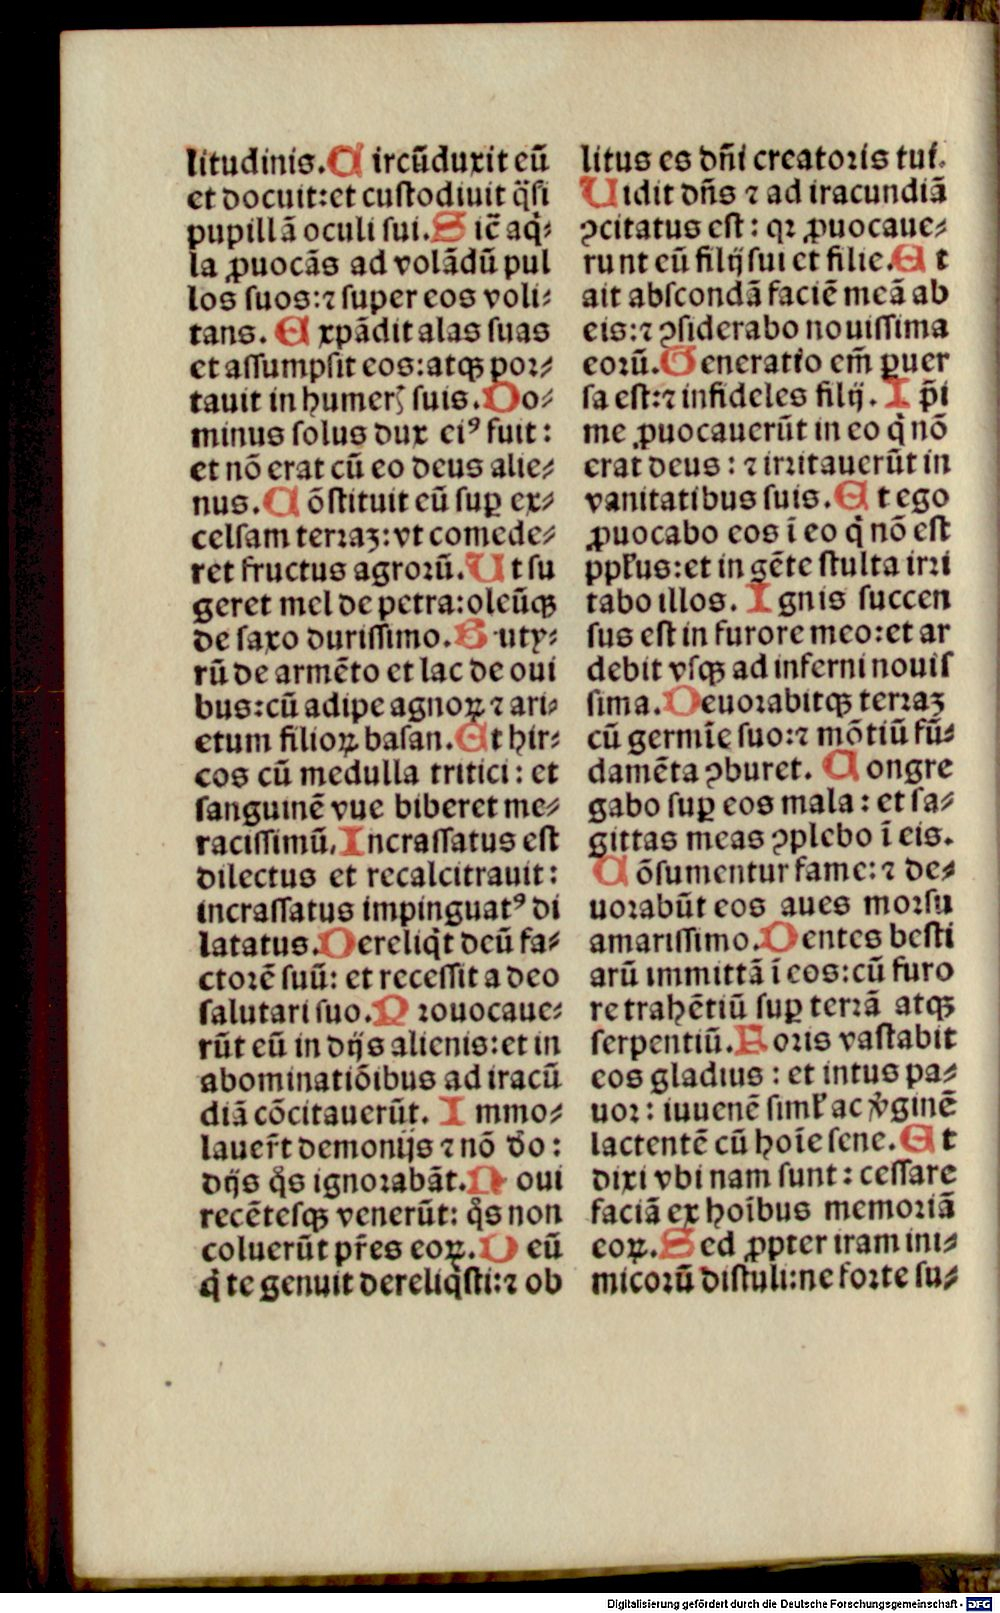 litudinis. Circũduxit eũ
et docuit: et custodiuit q̃si
pupillã oculi sui. Sic̃ aq̃⸗
la ꝓuocãs ad volãdũ pul
los suos: ⁊ super eos voli⸗
tans. Expãdit alas suas
et assumpsit eos: atqꝫ por⸗
tauit in humerꝭ suis. Do⸗
minus solus dux eiꝰ fuit:
et nõ erat cũ eo deus alie⸗
nus. Cõstituit eũ suꝑ ex⸗
celsam terraꝫ: vt comede⸗
ret fructus agrorũ. Ut su
geret mel de petra: oleũqꝫ
de saxo durissimo. Buty⸗
rũ de armẽto et lac de oui
bus: cũ adipe agnoꝝ ⁊ ari⸗
etum filioꝝ basan. Et hir⸗
cos cũ medulla tritici: et
sanguinẽ vue biberet me⸗
racissimũ. Incrassatus est
dilectus et recalcitrauit:
incrassatus impinguatꝰ di
latatus. Dereliq̃t deũ fa⸗
ctorẽ suũ: et recessit a deo
salutari suo. Prouocaue⸗
rũt eũ in dijs alienis: et in
abominatiõibus ad iracũ
diã cõcitauerũt. Immo⸗
lauer̃t demonijs ⁊ nõ d̃o:
dijs q̃s ignorabãt. Noui
recẽtesqꝫ venerũt: q̃s non
coluerũt pr̃es eoꝝ. Deũ
q̃ te genuit dereliq̃sti: ⁊ ob
litus es dñi creatoris tui.
Uidit dñs ⁊ ad iracundiã
ꝯcitatus est: qꝛ ꝓuocaue⸗
runt eũ filij sui et filie. Et
ait abscondã faciẽ meã ab
eis: ⁊ ꝯsiderabo nouissima
eorũ. Generatio em̃ ꝑuer
sa est: ⁊ infideles filij. Ip̃i
me ꝓuocauerũt in eo q̃ nõ
erat deus: ⁊ irritauerũt in
vanitatibus suis. Et ego
ꝓuocabo eos ĩ eo q̃ nõ est
ppľus: et in gẽte stulta irri
tabo illos. Ignis succen
sus est in furore meo: et ar
debit vsqꝫ ad inferni nouis
sima. Deuorabitqꝫ terraꝫ
cũ germĩe suo: ⁊ mõtiũ fũ⸗
damẽta ꝯburet. Congre
gabo suꝑ eos mala: et sa⸗
gittas meas ꝯplebo ĩ eis.
Cõsumentur fame: ⁊ de⸗
uorabũt eos aues morsu
amarissimo. Dentes besti
arũ immittã ĩ eos: cũ furo
re trahẽtiũ suꝑ terrã atqꝫ
serpentiũ. Foris vastabit
eos gladius: et intus pa⸗
uor: iuuenẽ simľ ac ṽginẽ
lactentẽ cũ hoĩe sene. Et
dixi vbi nam sunt: cessare
faciã ex hoĩbus memoriã
eoꝝ. Sed ꝓpter iram ini⸗
micorũ distuli: ne forte su⸗
Digitalisierung gefördert durch die Deutsche Forschungsgemeinschaft - DFG